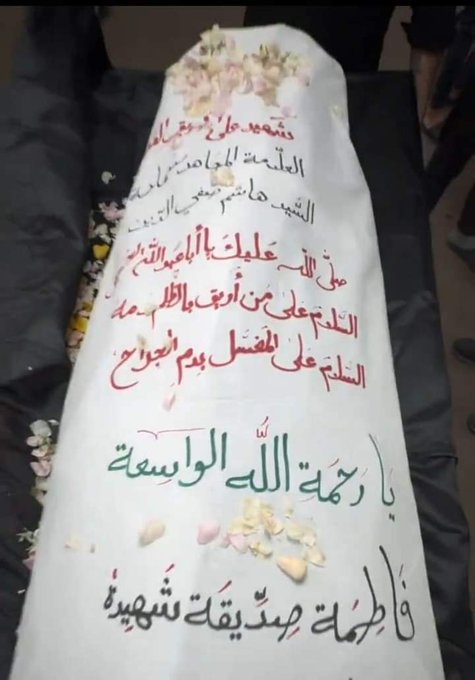 شهيد على طريق القدس
العلّامة المجاهد سماحة
السّيد هاشم صفي الدين
صلّى الله عليك يا أبا عبد الله الحسين
السّلام على من أريق بالظلم دمه
السّلام على المغسّل بدم الجراح
يا رحمة الله الواسعة
فاطمة صدّيقة شهيدة